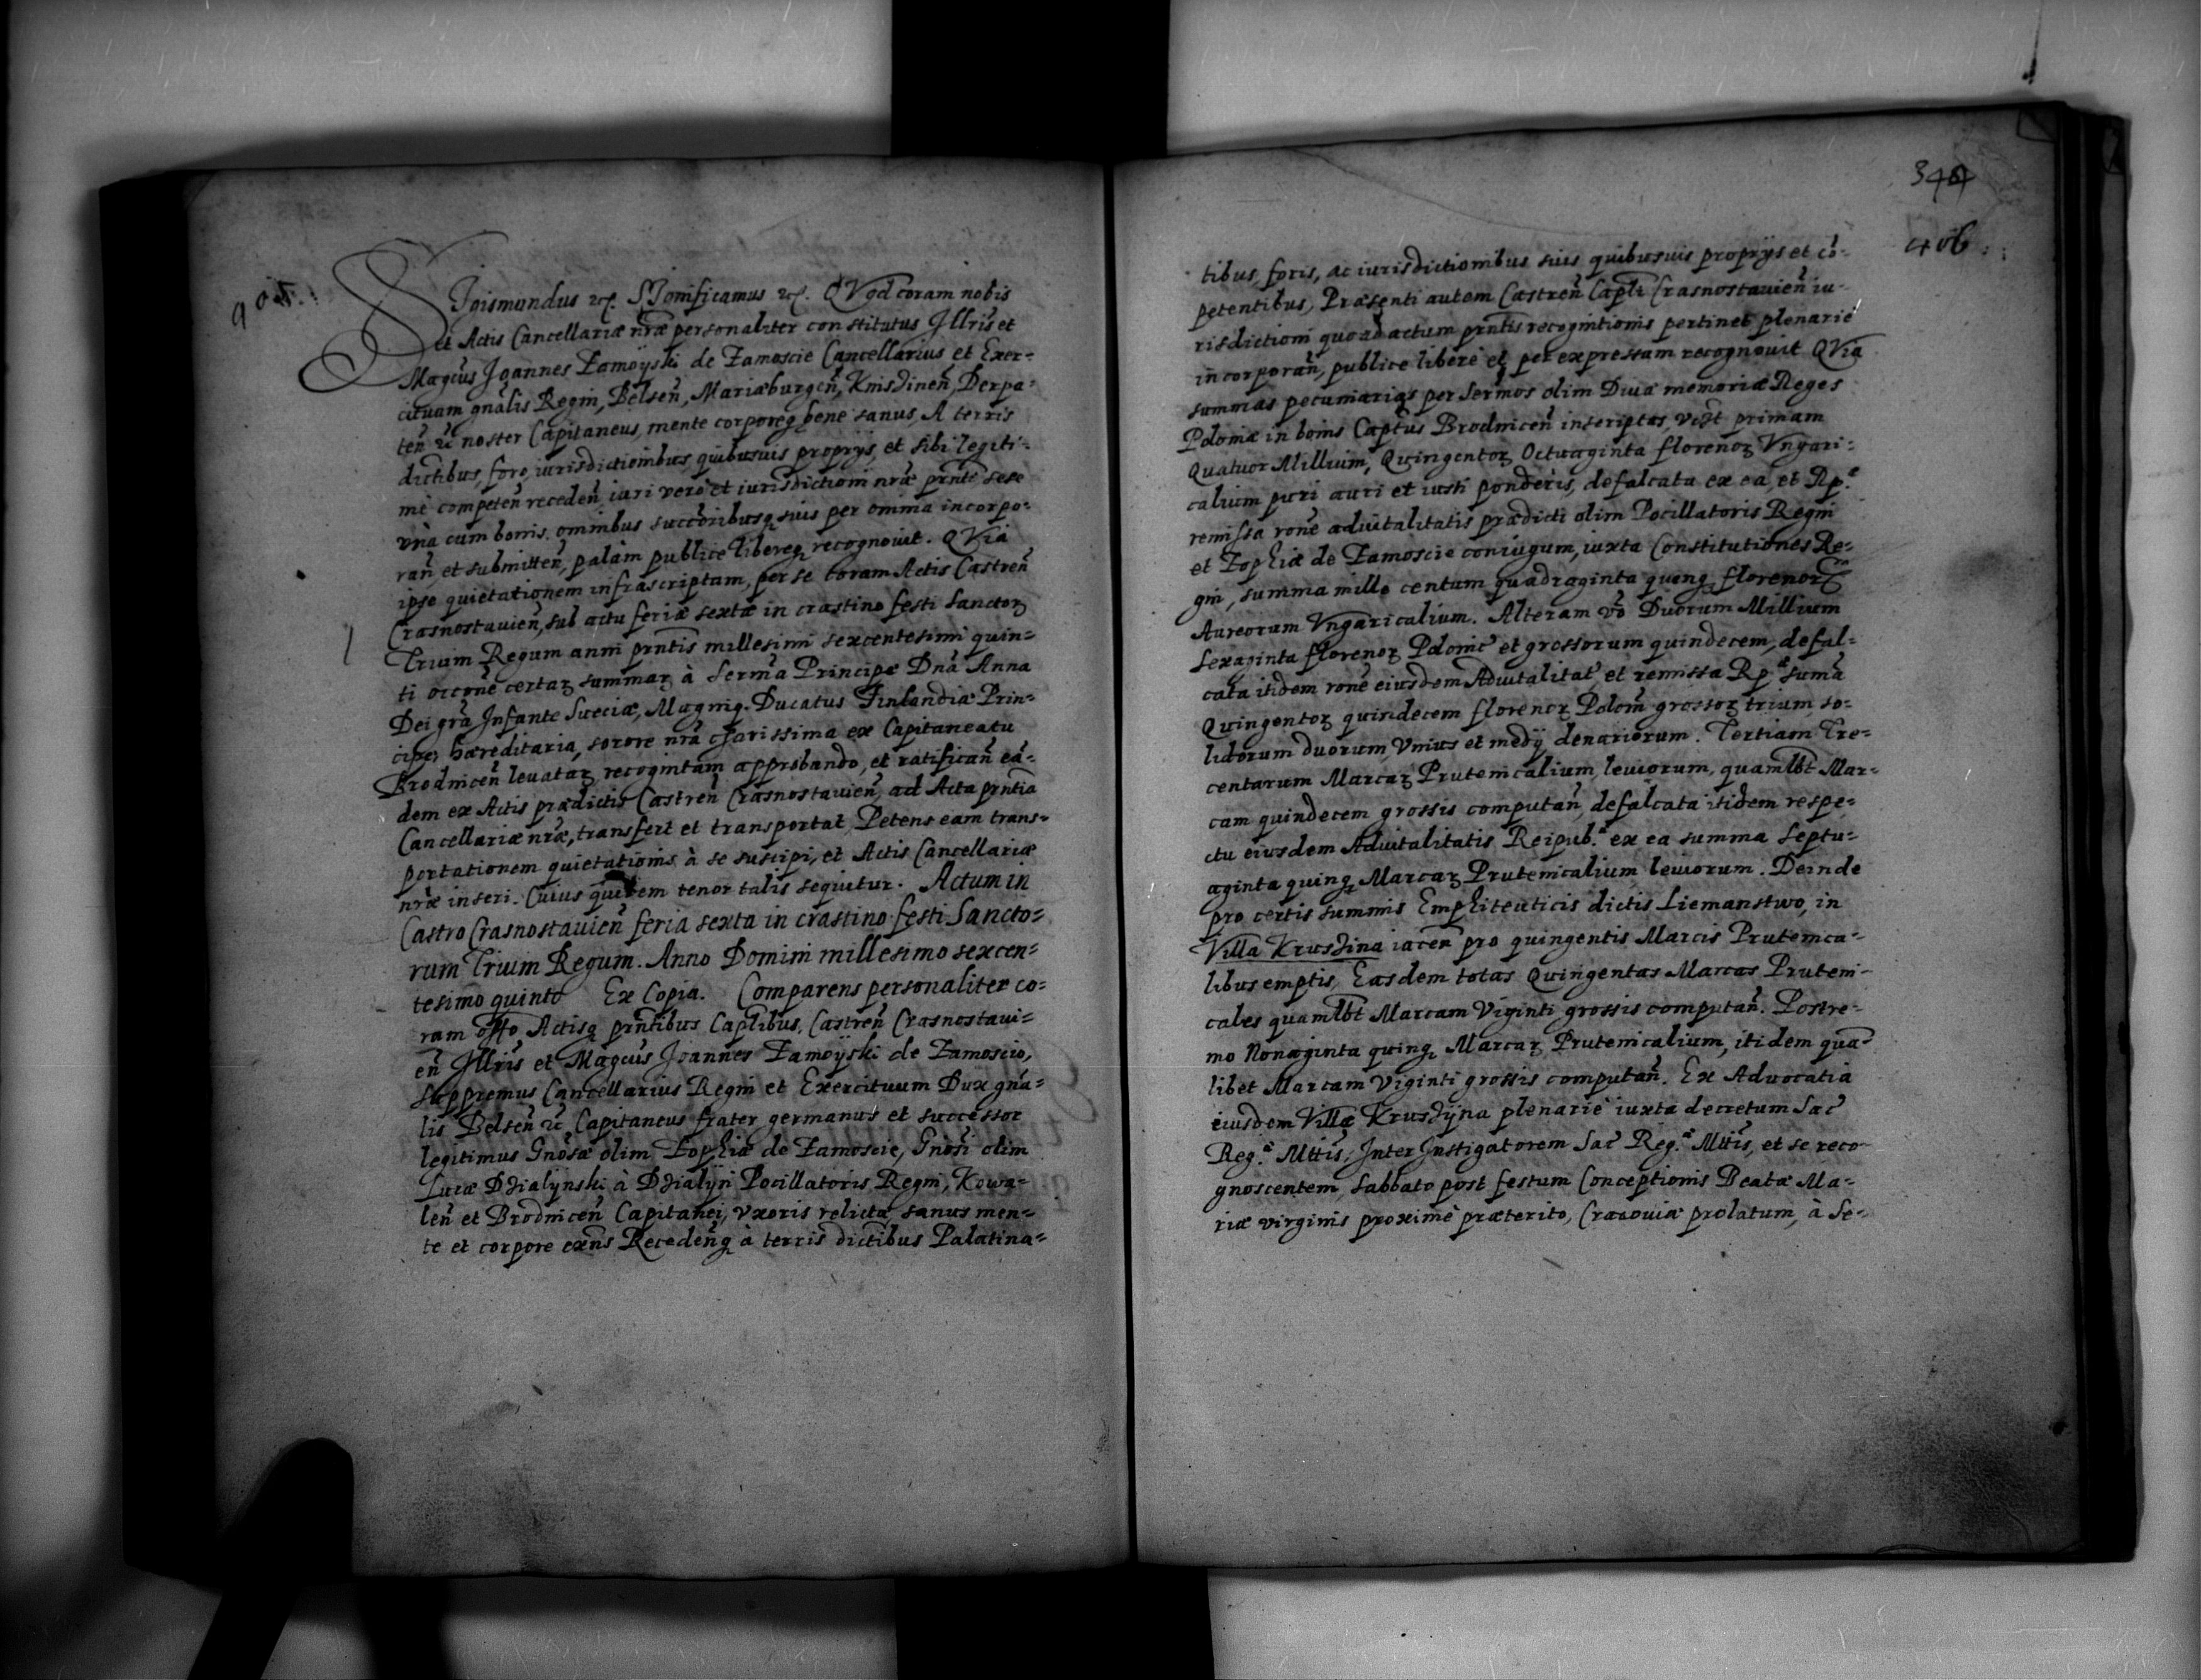 405.
SIgismundus etc. SIgnificamus etc. QVod coram nobis
et Actis Cancellariæ nr̃æ personaliter constitutus Jllris̃ et
Magcus̃ Joannes Zamoÿski de Zamoscie Cancellarius et Exer=
cituum gnãlis Regni, Belseñ, Mariæburgeñ, Knisdineñ, Derpa=
teñ etc̃ noster Capitaneus, mente corporeqꝫ bene sanus, A terris
dictibus̃, foro, iurisdictionibus quibusuis proprijs, et sibi legiti=
mè competeñ recedeñ, iuri verò et iurisdictioni nr̃æ prñte sese
vnà cum bonis omnibus succoribusqꝫ suis per omnia incorpo=
rañ et submitteñ, palàm publice libereqꝫ recognouit. QVia
ipse quietationem infrascriptam, per se coram Actis Castreñ
Crasnostauieñ, sub actu feriæ sextæ in crastino festi Sanctoꝝ
Trium Regum anni prñtis millesimi sexcentesimi quin=
ti occonẽ certaꝝ summaꝝ à Serma Principe Dnã Anna
Dei grã Jnfante Sueciæ, Magniqꝫ Ducatus Finlandiæ Prin=
cipe, hæreditaria, sorore nrã charissima ex Capitaneatu
Brodniceñ leuataꝝ recognitam approbando, et ratificañ eã=
dem ex Actis prædictis Castreñ Crasnostauieñ, ad Acta prñtia
Cancellariæ nr̃æ, transfert et transportat, Petens eam trans=
portationem quietationis à se suscipi, et Actis Cancellariæ
nr̃æ inseri. Cuius quidem tenor talis sequitur. Actum in
Castro Crasnostauieñ feria sexta in crastino festi Sancto=
rum Trium Regum. Anno Domini millesimo sexcen=
tesimo quinto Ex Copia. Comparens personaliter co=
ram offo Actisqꝫ prñtibus Caplibus̃, Castreñ Crasnostaui=
eñ Jllris̃ et Magcus̃ Joannes Zamoÿski de Zamoscio,
Suppremus Cancellarius Regni et Exercituum Dux gnã=
lis Belseñ etc̃ Capitaneus frater germanus et successor
legitimus Gnosæ̃ olim Zophiæ de Zamoscie, Gnosĩ olim
Lucæ Dzialÿnski à Dzialÿn Pocillatoris Regni, Kowa=
leñ et Brodniceñ Capitanei, vxoris relictæ sanus men=
te et corpore exñs Recedeñqꝫ à terris dictibus̃ Palatina=
344
406.
tibus, foris, ac iurisdictionibus suis quibusuis proprijs et cõ=
petentibus, Præsenti autem Castreñ Capli Crasnostauieñ iu=
risdictioni quo ad actum prñtis recognitionis pertinet plenarie
incorporañ, publice liberè et per expressam recognouit QVia
summas pecuniarias per Sermos olim Diuæ memoriæ Reges
Poloniæ in bonis Captus̃ Brodniceñ inscriptas, vczt primam
Quatuor Millium, Quingentoꝝ Octuaginta florenoꝝ Vngari=
calium puri auri et iusti ponderis, defalcata ex ea, et Rp.ᵃᵉ
remissa ronẽ aduitalitatis prædicti olim Pocillatoris Regni
et Zophiæ de Zamoscie coniugum, iuxta Constitutiones Re=
gni, summa mille centum quadraginta quinqꝫ florenorum
Aureorum Vngaricalium. Alteram võ Duorum Millium
Sexaginta florenoꝝ Polonic̃ et grossorum quindecem, defal=
cata itidem ronẽ eiusdem Aduitalitat̃ et remissa Rp.ᵃᵉ sumã
Quingentoꝝ quindecem florenoꝝ Poloñ grossoꝝ trium, so=
lidorum duorum, Vnius et medÿ denariorum. Tertiam Tre=
centarum Marcaꝝ Prutenicalium, leuiorum, quamlbt Mar=
cam quindecem grossis computañ, defalcata itidem respe=
ctu eiusdem Aduitalitatis Reipub.ᵃᵉ ex ea summa Septu=
aginta quinqꝫ Marcaꝝ Prutenicalium leuiorum. Deinde
pro certis summis Emphiteuticis dictis Liemanstwo, in
Villa Krusdina iaceñ pro quingentis Marcis Prutenica=
libus emptis, Easdem totas Quingentas Marcas Pruteni=
cales quamlbt Marcam Viginti grossis computañ. Postre=
mo Nonaginta quinqꝫ Marcaꝝ Prutenicalium, itidem quã=
libet Marcam Viginti grossis computañ. Ex Aduocatia
eiusdem Villæ Krusdÿna plenariè iuxta decretum Sac̃
Reg.ᵃᵉ Mttis̃, Jnter Jnstigatorem Sac̃ Reg.ᵃᵉ Mttis̃, et se reco=
gnoscentem, Sabbato post festum Conceptionis Beatæ Ma=
riæ virginis proximè præterito, Cracouiæ prolatum, à Se=